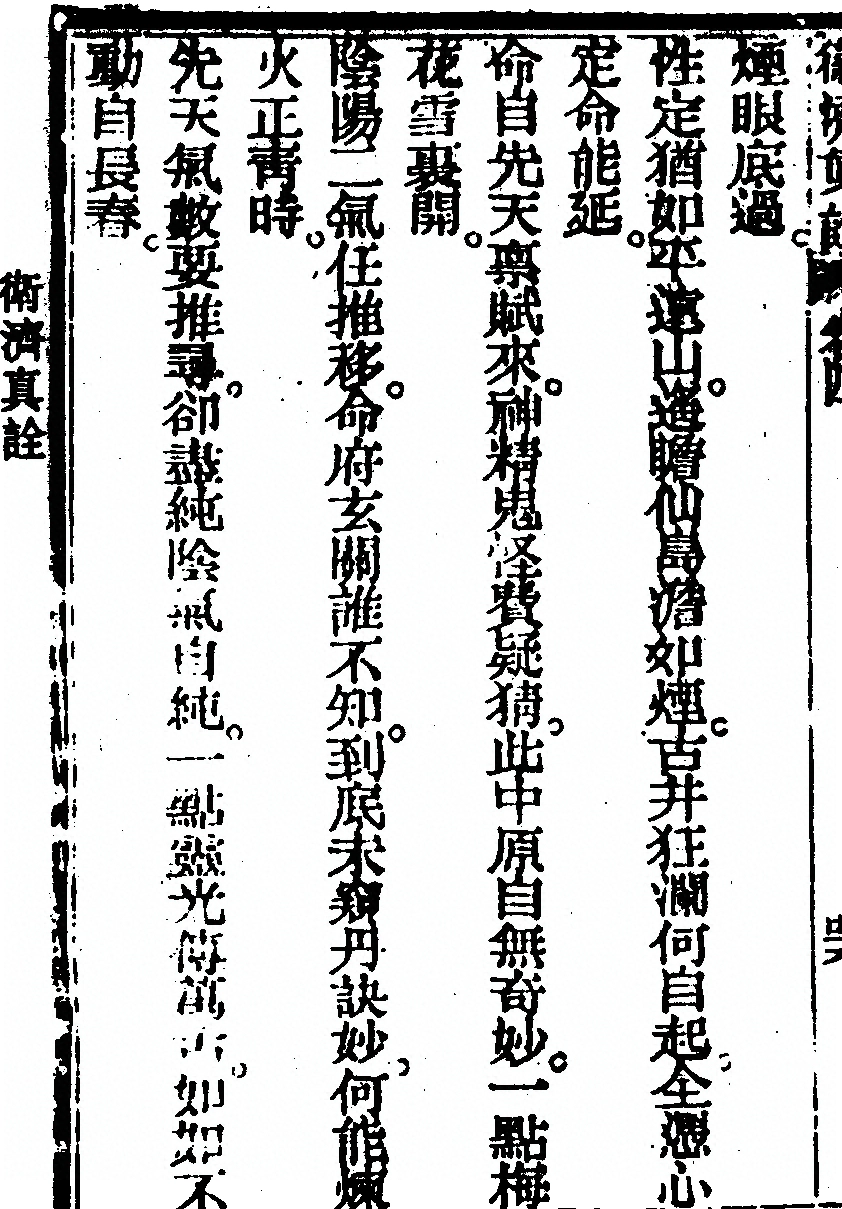 煙眼底過。
性定猶如平遠山。遙瞻仙島澹如煙。古井狂瀾何自起。全憑心
定命能延。
命自先天稟賦來。神精鬼怪費疑猜。此中原自無奇妙。一點梅
花雪裏開。
陰陽二氣任推移。命府玄關誰不知。到底未窺丹訣妙。何能煉
火正青時。
先天氣數要推尋。卻盡純陰氣自純。一點靈光傳萬古。如如不
動自長春。
衛濟真詮